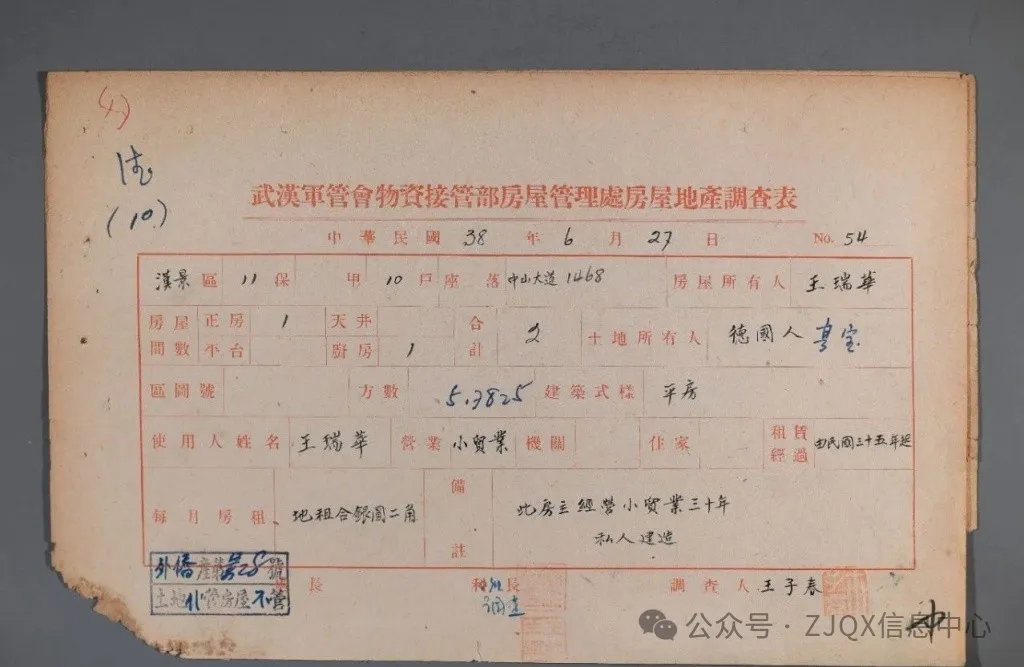 德
(10)
武漢軍管會物資接管部房屋管理處房屋地產調查表
中華民國 38 年 6 月 27 日 No. 54
漢景 區 11 保 甲 10 戶 座落 中山大道1468 房屋所有人 王瑞華
房屋間數 正房 1 天井 合計 2 土地所有人 德國人亨宝
平台 廚房 1
區圖號 方數 5.3825 建築式樣 平房
使用人姓名 王瑞華 營業 小貿業 機關 住家 租賃經過 由民國三十五年起
每月房租 地租合銀圓二角 備註 此房主經營小貿業三十年
私人建造
外僑產 第28號 長 科長 調查人 王子春
土地代管房屋不管
公众号 · ZJQX信息中心